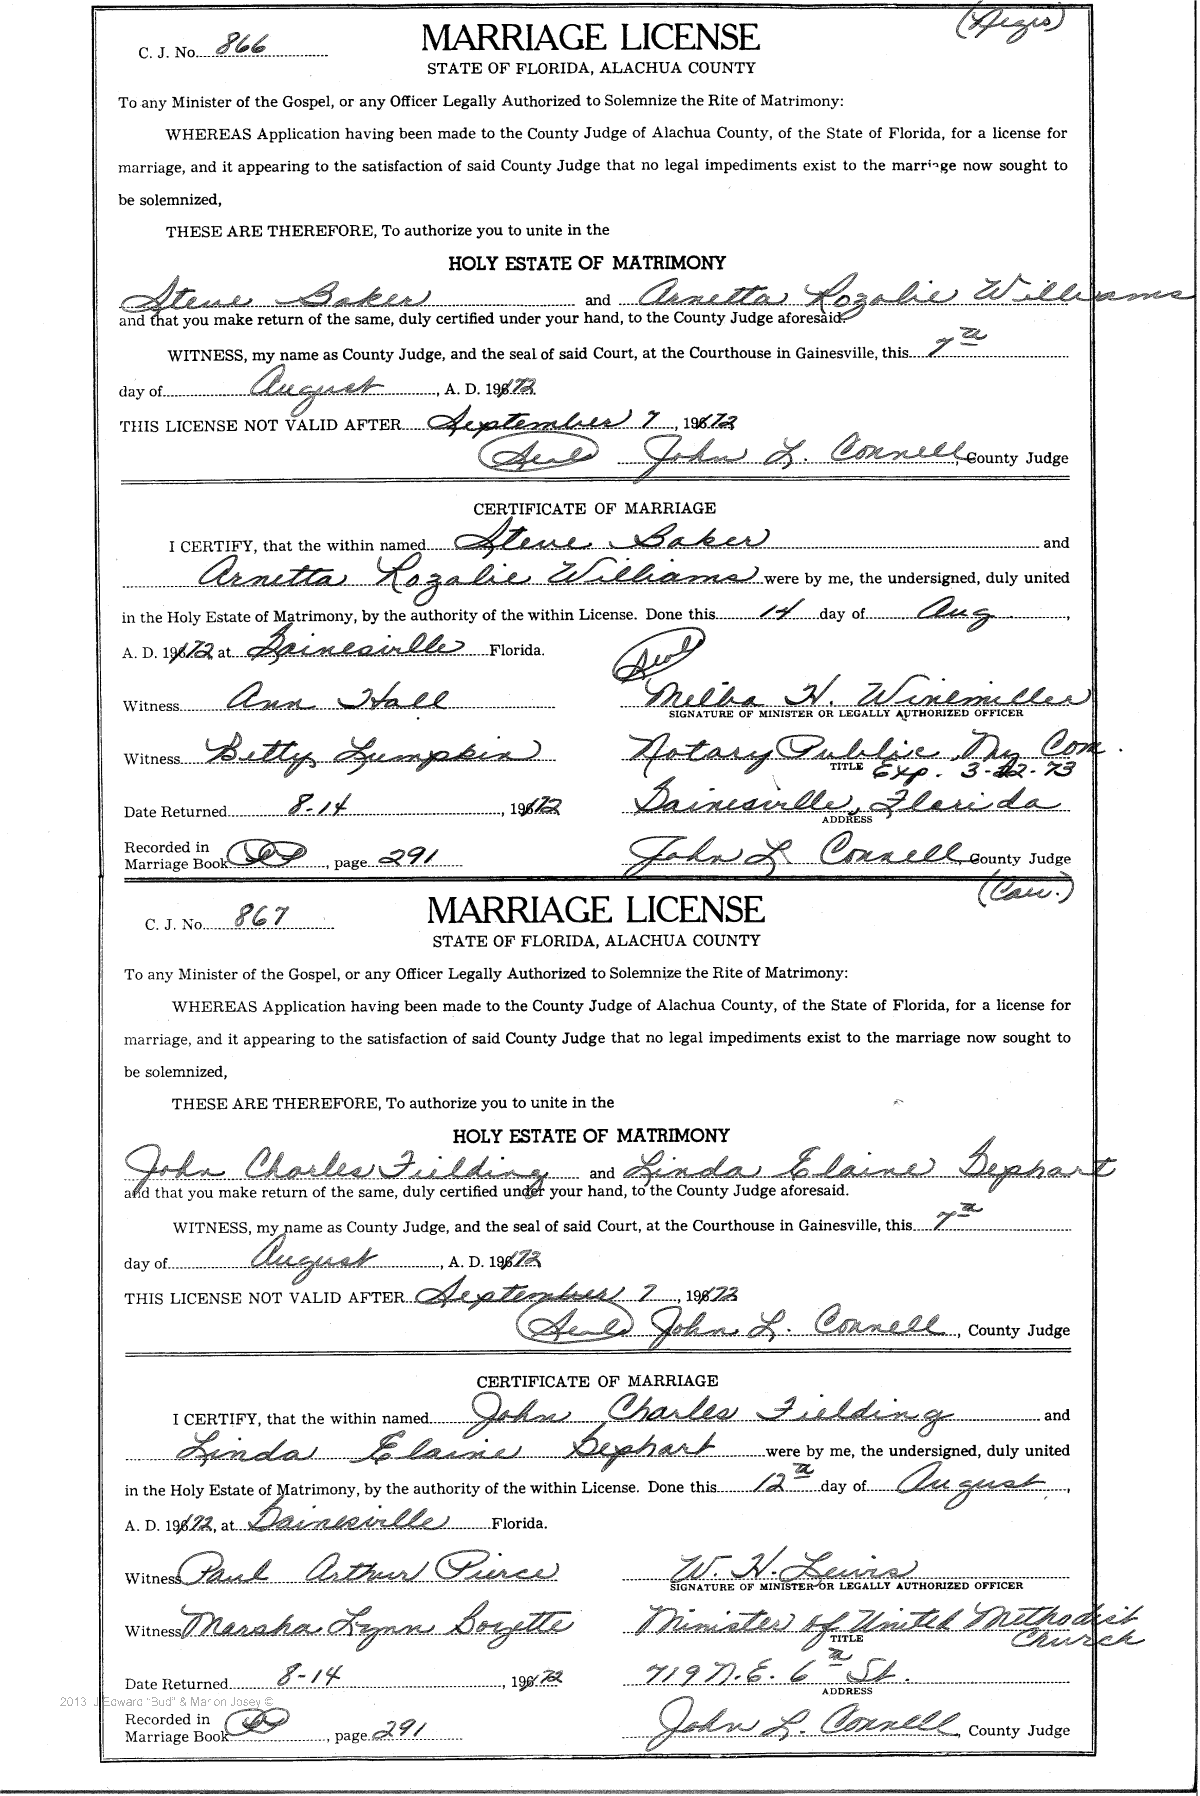 (Negro)
C. J. No. 866 MARRIAGE LICENSE
STATE OF FLORIDA, ALACHUA COUNTY
To any Minister of the Gospel, or any Officer Legally Authorized to Solemnize the Rite of Matrimony:
WHEREAS Application having been made to the County Judge of Alachua County, of the State of Florida, for a license for
marriage, and it appearing to the satisfaction of said County Judge that no legal impediments exist to the marriage now sought to
be solemnized,
THESE ARE THEREFORE, To authorize you to unite in the
HOLY ESTATE OF MATRIMONY
Steve Baker and Arnetta Rozalie Williams
and that you make return of the same, duly certified under your hand, to the County Judge aforesaid.
WITNESS, my name as County Judge, and the seal of said Court, at the Courthouse in Gainesville, this 7th
day of August, A. D. 1972
THIS LICENSE NOT VALID AFTER September 7, 1972
(Seal) John L. Connell, County Judge
CERTIFICATE OF MARRIAGE
I CERTIFY, that the within named Steve Baker and
Arnetta Rozalie Williams were by me, the undersigned, duly united
in the Holy Estate of Matrimony, by the authority of the within License. Done this 14 day of Aug,
A. D. 1972 at Gainesville Florida.
(Seal)
Witness Ann Hall Melba H. Winemiller
SIGNATURE OF MINISTER OR LEGALLY AUTHORIZED OFFICER
Witness Betty Lumpkin Notary Public My Com.
TITLE Exp. 3-22-73
Date Returned 8-14, 1972 Gainesville, Florida
ADDRESS
Recorded in
Marriage Book, page 291 John L. Connell County Judge
(Cau.)
C. J. No. 867 MARRIAGE LICENSE
STATE OF FLORIDA, ALACHUA COUNTY
To any Minister of the Gospel, or any Officer Legally Authorized to Solemnize the Rite of Matrimony:
WHEREAS Application having been made to the County Judge of Alachua County, of the State of Florida, for a license for
marriage, and it appearing to the satisfaction of said County Judge that no legal impediments exist to the marriage now sought to
be solemnized,
THESE ARE THEREFORE, To authorize you to unite in the
HOLY ESTATE OF MATRIMONY
John Charles Fielding and Linda Elaine Gephart
and that you make return of the same, duly certified under your hand, to the County Judge aforesaid.
WITNESS, my name as County Judge, and the seal of said Court, at the Courthouse in Gainesville, this 7th
day of August, A. D. 1972
THIS LICENSE NOT VALID AFTER September 7, 1972
(Seal) John L. Connell, County Judge
CERTIFICATE OF MARRIAGE
I CERTIFY, that the within named John Charles Fielding and
Linda Elaine Gephart were by me, the undersigned, duly united
in the Holy Estate of Matrimony, by the authority of the within License. Done this 12th day of August,
A. D. 1972, at Gainesville Florida.
Witness Paul Arthur Pierce W. H. Lewis
SIGNATURE OF MINISTER OR LEGALLY AUTHORIZED OFFICER
Witness Marsha Lynn Boyette Minister of United Methodist
TITLE Church
Date Returned 8-14, 1972 719 N.E. 6th St.
ADDRESS
2013 J Edward "Bud" & Marion Josey ©
Recorded in
Marriage Book, page 291 John L. Connell, County Judge